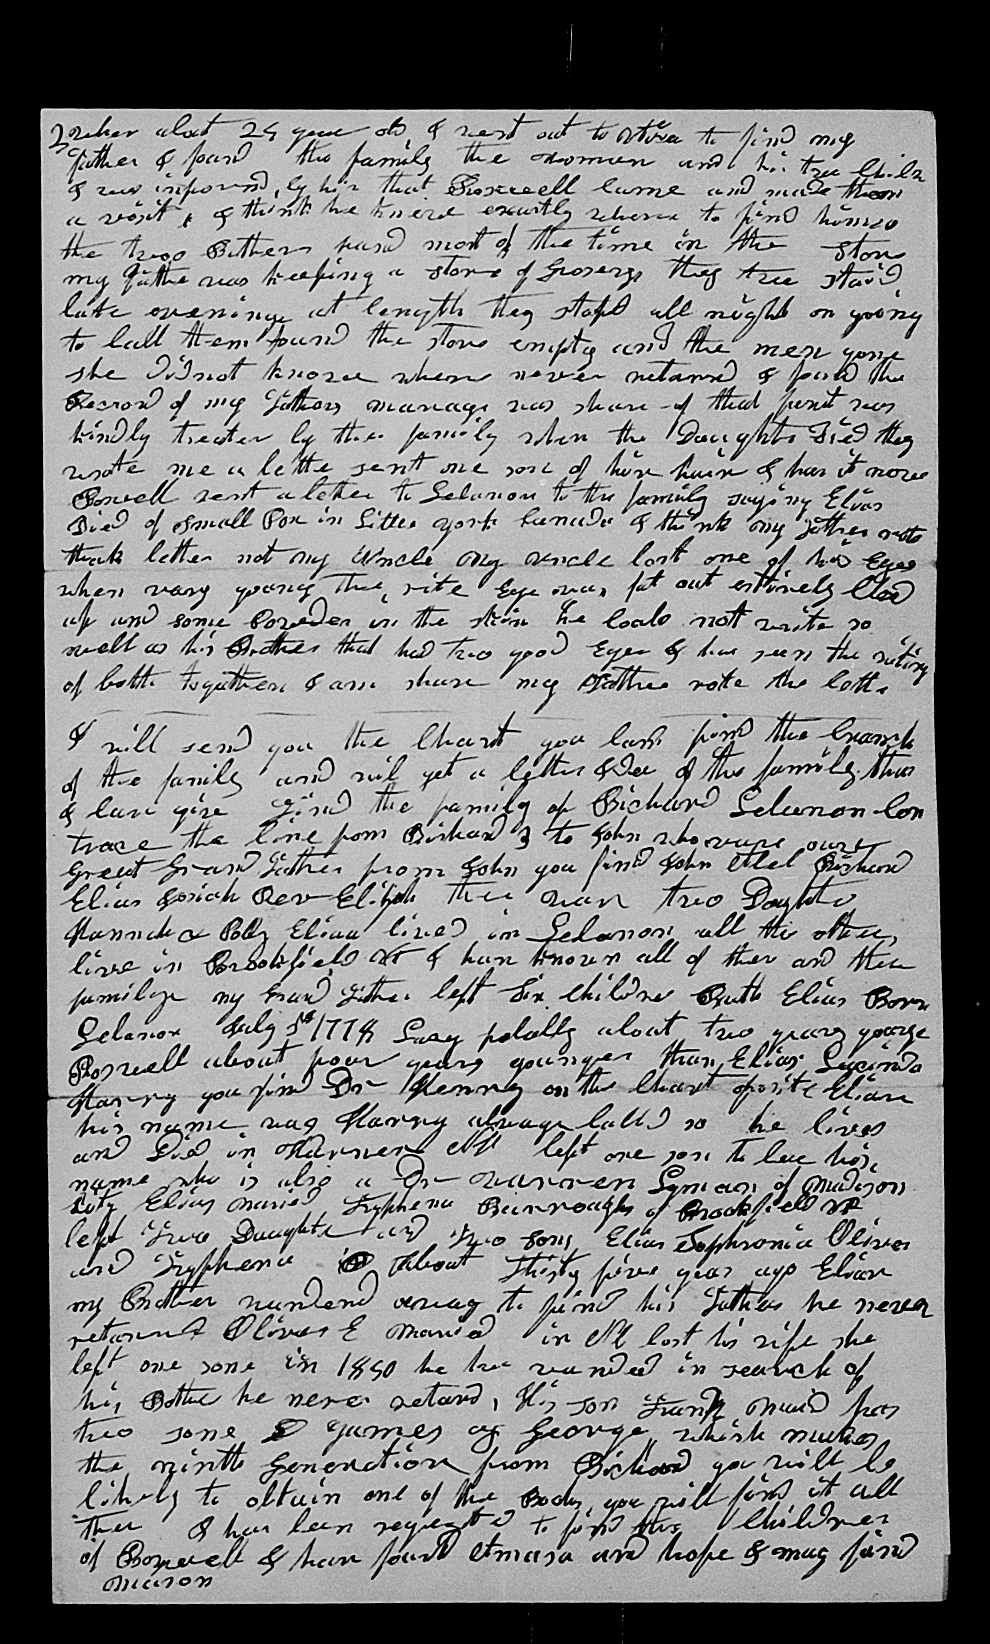 when about 24 year old I went out to Utica to find my
father & found this family the women and his two Childn
I was informd by her that Roswell Came and made them
a visit & I think he knew exactly where to find him so
the two Bothers pasd most of the time in the Store
my Father was keeping a store of Grosery they two staid
late evening at length they stopd all night on going
to Call them found the store empty and the men gone
she did not know where never returnd I found the
Record of my Fathers marriage was shure of that fact was
kindly treated by the family when the Daughter Died they
wrote me a lette sent one of her hair & has it now
Roswell sent a letter to Lebanon to the family saying Elias
Died of Small Pox in Little york Canada I think my Father wrote
that letter not my Uncle my Uncle lost one of his Eyes
when vary young the rite Eye was put out entirely Clos
up and some Powder in the skin he Could not write so
well as his Brother that had two good Eyes I hav seen the riting
of both together I am shure my Father rote the lette
I will send you the Chart you Can find the branch
of the family and wil get a letter of this family thus
I Can give find the family of Richard Lebanon Con
trace the line from Richard to John who ware our
Great Grand Father from John you find John Ethel Richard
Elias Josiah Rev Elijah thee ware two Daughte
Hannah & Polly Elias lived in Lebanon all the others
live in Brookfield Vt I have known all of them and thee
familys my Grand Father left Six Childre Ruth Elias Born
Lebanon July 1st 1778 Lucy probally about two years younge
Roswell about four years younger than Elias Lucinda
Harry you find Dr Henry on the Chart oposite Elias
his name was Harry always Calld so he lived
and Died in Warner NH left one son to bee his
name who is also a Dr Warren Lyman of Madison
City Elias maried Tryphena Burroughs of Brookfield Vt
left Two Daughte and two sons Elias Sophronia Oliver
and Tryphena About Thirty five year ago Elias
my Brother wanderd away to find his Father he never
returnd Oliver E Maried in NH lost his wife she
left one sone in 1850 he too wanded in search of
his Bothe he never returd, His son Frank Maried has
two sone James & George which makes
the ninth Generation from Richard you will be
likely to obtain one of the Books, you will find it all
thee I has been requested to find the Children
of Roswell I have found Almara and hope I may find
Marion